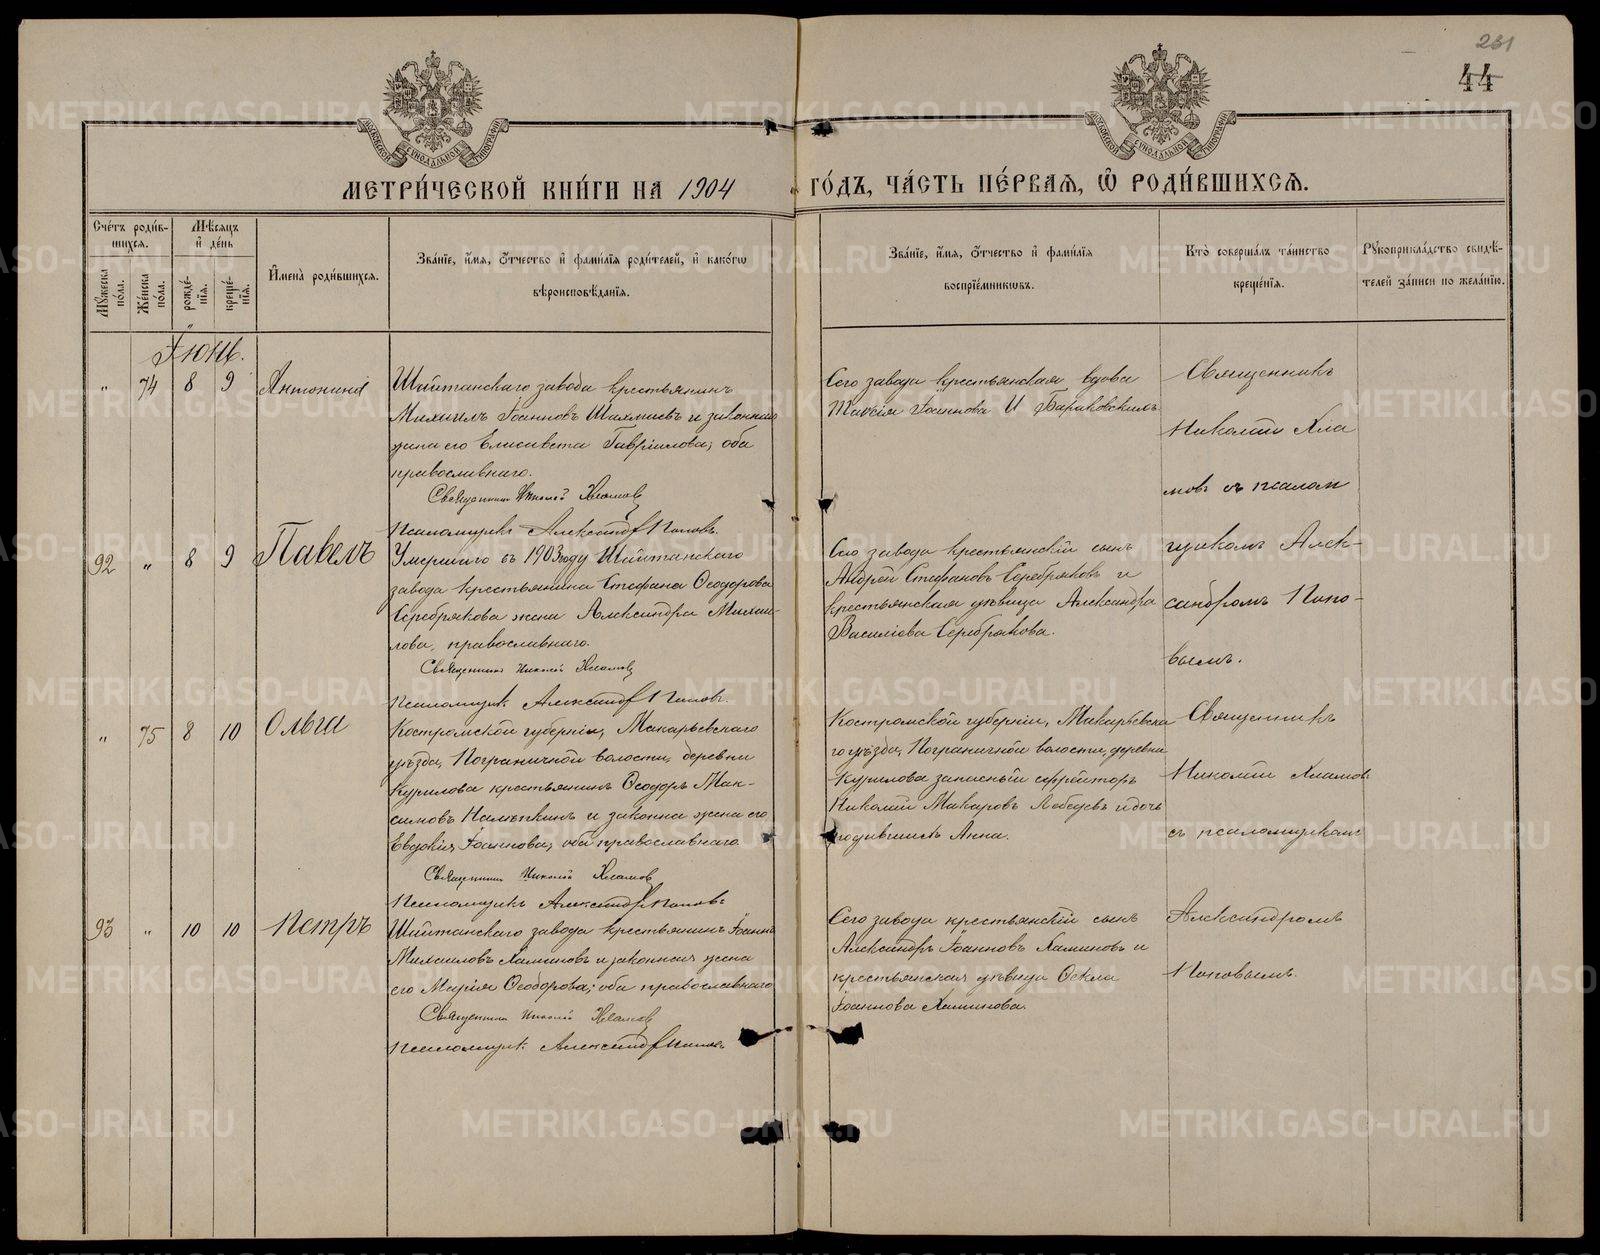 231
44
МЕТРИ́ЧЕСКОЙ КНИ́ГИ НА 1904 ГО́ДЪ, ЧА́СТЬ ПЕ́РВАЯ, Ѡ РОДИ́ВШИХСЯ.
Сче́тъ роди́вшихся.
Му́жеска по́ла.
Же́нска по́ла.
Мѣ́сяцъ и де́нь
рожде́нія.
креще́нія.
Имена̀ роди́вшихся.
Зва́ніе, и́мя, о́тчество и фами́лія роди́телей, и како́гѡ
вѣроисповѣ́данія.
Зва́ніе, и́мя, о́тчество и фами́лія
воспріе́мникѡвъ.
Кто̀ соверша́лъ та́инство
креще́нія.
Рукоприкла́дство свидѣ́-
телей за́писи по жела́нію.
Іюнь.
" 74 8 9 Антонина
Шайтанскаго завода крестьянинъ
Михаилъ Іоанновъ и законная
жена его Елисавета Гавріилова; оба
православнаго.
Священникъ Николай Хламовъ
Псаломщикъ Александръ Поповъ.
Сего завода крестьянская вдова
Таисія Іоаннова
Священникъ
Николай Хла
мовъ съ псалом
щикомъ Алек-
сандромъ Попо-
вымъ.
92 " 8 9 Павелъ
Умершаго въ 1903 году Шайтанскаго
завода крестьянина Стефана Ѳеодорова
Серебрякова жена Александра Михаи-
лова, православнаго.
Священникъ Николай Хламовъ
Псаломщикъ Александръ Поповъ.
Сего завода крестьянскій сынъ
Андрей Стефановъ Серебряковъ и
крестьянская дѣвица Александра
Василіева Серебрякова.
" 75 8 10 Ольга
Костромской губерніи, Макарьевскаго
уѣзда, Пограничной волости, деревни
Курилова крестьянинъ Ѳеодоръ Мак-
симовъ и законная жена его
Евдокія Іоаннова; оба православнаго.
Священникъ Николай Хламовъ
Псаломщикъ Александръ Поповъ
Костромской губерніи, Макарьевска
го уѣзда, Пограничной волости, деревни
Курилова запасный ефрейторъ
Николай Макаровъ Лебедевъ и дочь
Анна.
Священникъ
Николай Хламов
съ псаломщикомъ
Александромъ
Поповымъ.
93 " 10 10 Петръ
Шайтанскаго завода крестьянинъ Іоаннъ
Михаиловъ Халминовъ и законная жена
его Марія Ѳеодорова; оба православнаго
Священникъ Николай Хламовъ
Псаломщикъ Александръ Поповъ
Сего завода крестьянскій сынъ
Александръ Іоанновъ Халминовъ и
крестьянская дѣвица Ѳекла
Іоаннова Халминова.
METRIKI.GASO-URAL.RU